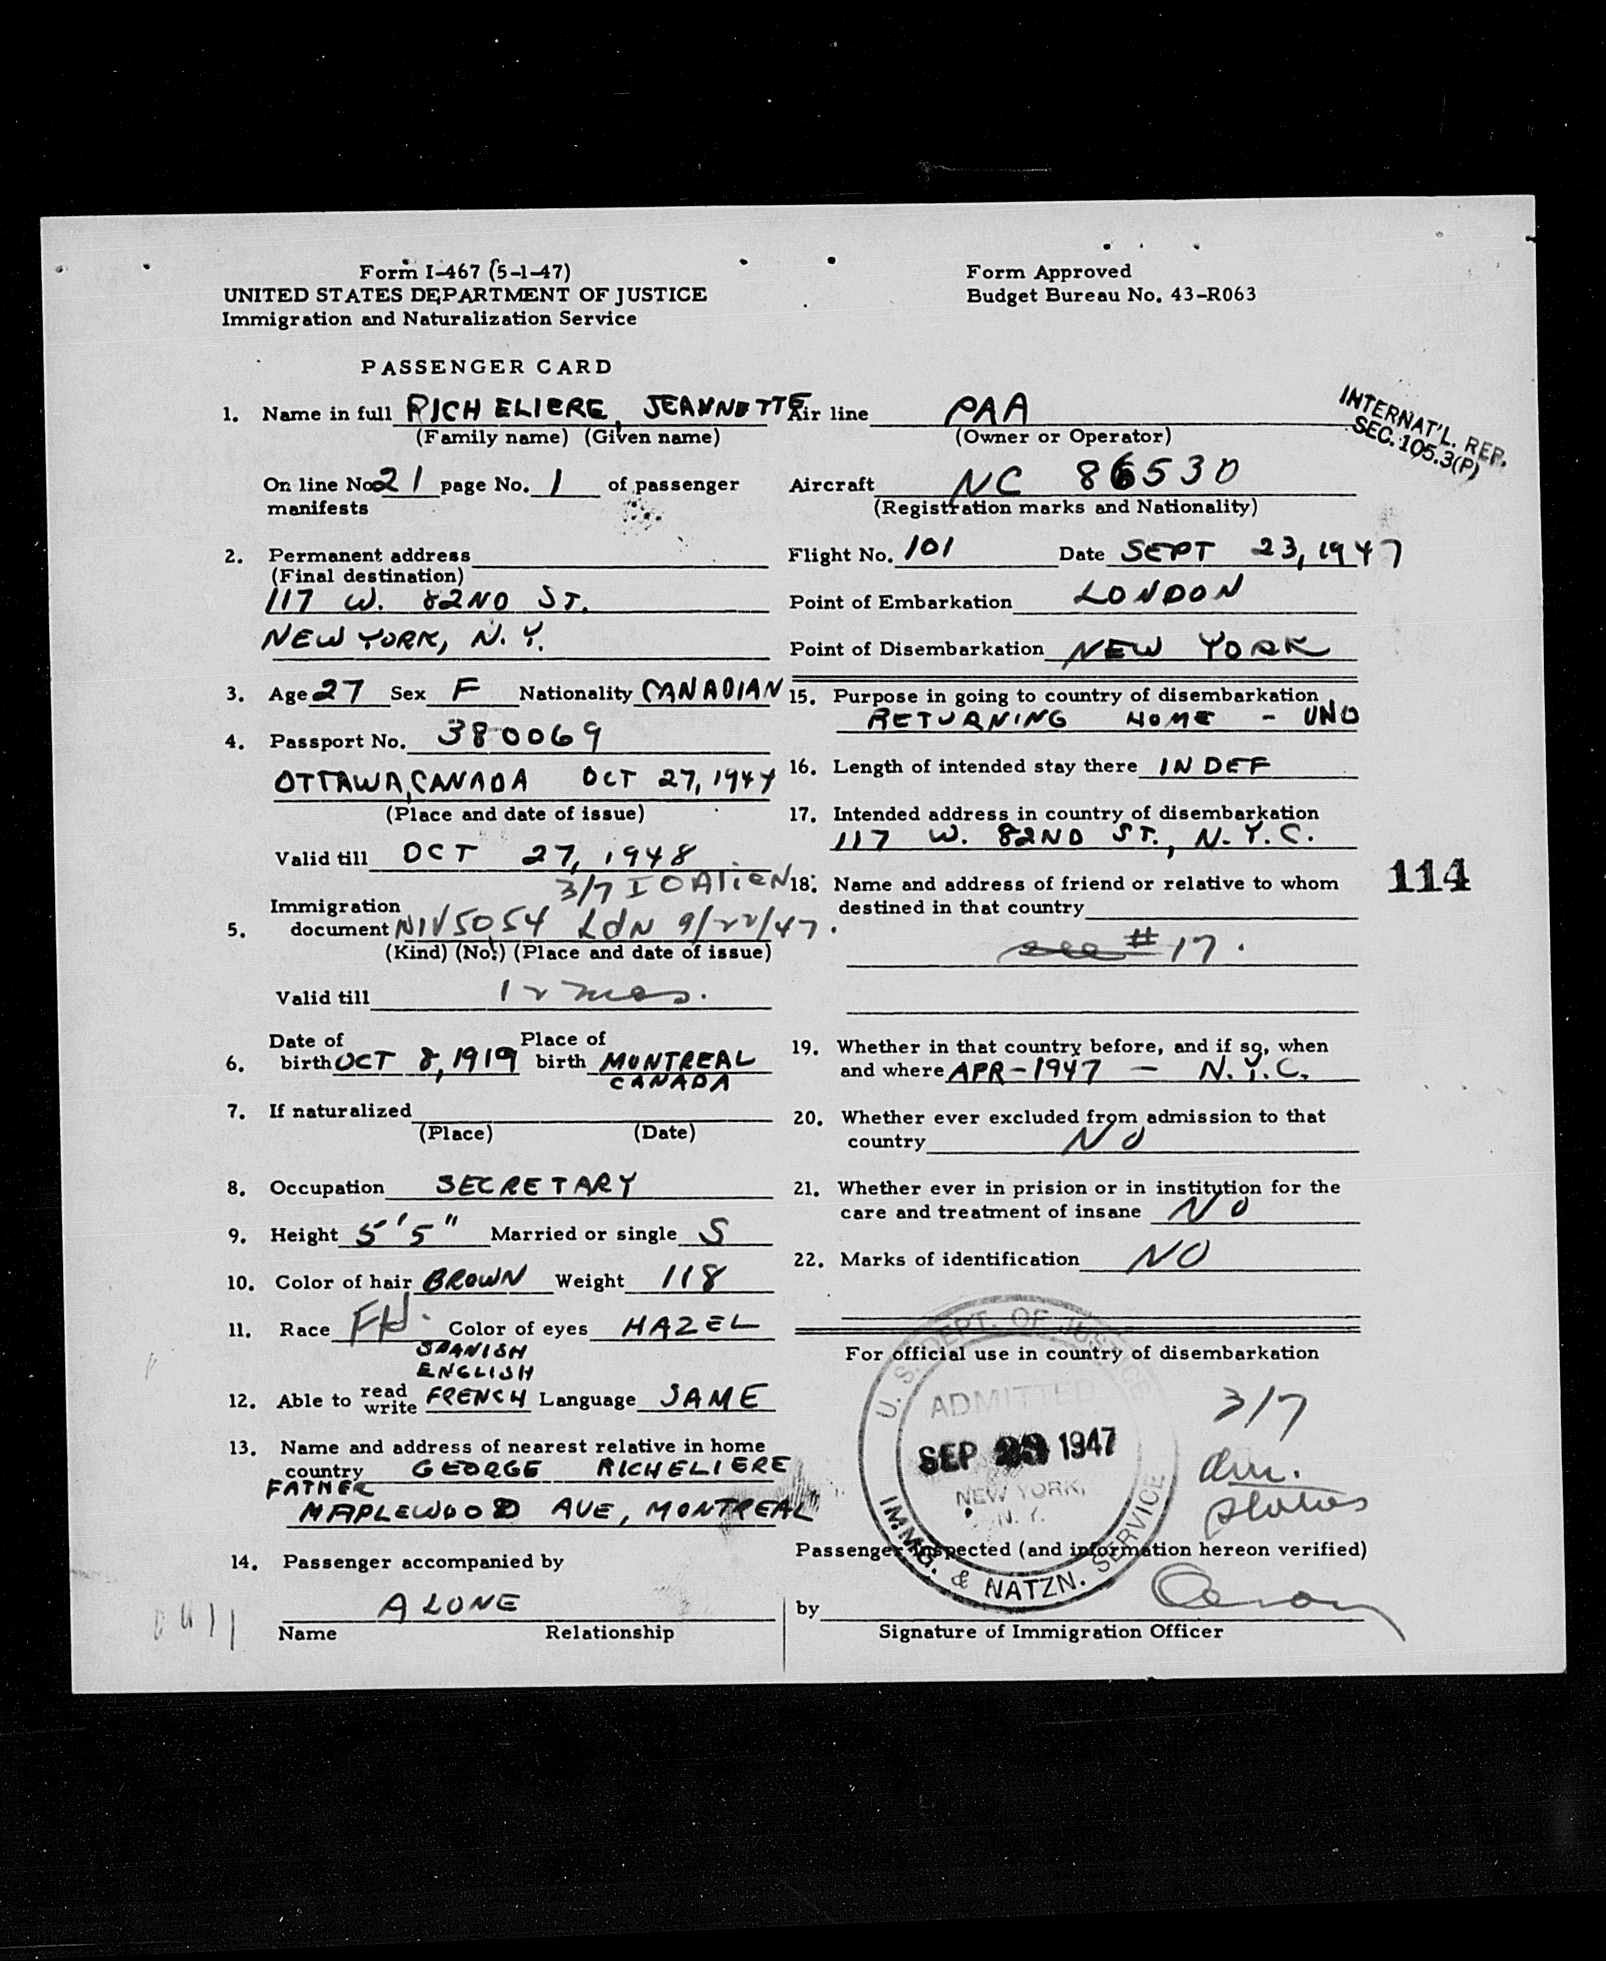 Form I-467 (5-1-47)
UNITED STATES DEPARTMENT OF JUSTICE
Immigration and Naturalization Service
Form Approved
Budget Bureau No. 43-R063
PASSENGER CARD
1. Name in full RICHELIERE, JEANNETTE
(Family name) (Given name)
On line No. 21 page No. 1 of passenger
manifests
2. Permanent address
(Final destination)
117 W. 82ND ST.
NEW YORK, N.Y.
3. Age 27 Sex F Nationality CANADIAN
4. Passport No. 380069
OTTAWA, CANADA OCT 27, 1947
(Place and date of issue)
Valid till OCT 27, 1948
3/7 IO Alien
Immigration
5. document NIV 5054 LdN 9/22/47.
(Kind) (No.) (Place and date of issue)
Valid till 12 mos.
Date of Place of
6. birth OCT 8, 1919 birth MONTREAL
CANADA
7. If naturalized
(Place) (Date)
8. Occupation SECRETARY
9. Height 5'5" Married or single S
10. Color of hair BROWN Weight 118
11. Race Color of eyes HAZEL
SPANISH
ENGLISH
12. Able to read write FRENCH Language SAME
13. Name and address of nearest relative in home
country GEORGE RICHELIERE
FATHER
MAPLEWOOD AVE, MONTREAL
14. Passenger accompanied by
ALONE
Name Relationship
Air line PAA
(Owner or Operator)
INTERNAT'L. REP.
SEC. 105.3(P)
Aircraft NC 86530
(Registration marks and Nationality)
Flight No. 101 Date SEPT 23, 1947
Point of Embarkation LONDON
Point of Disembarkation NEW YORK
15. Purpose in going to country of disembarkation
RETURNING HOME - UNO
16. Length of intended stay there INDEF
17. Intended address in country of disembarkation
117 W. 82ND ST., N.Y.C.
114
18. Name and address of friend or relative to whom
destined in that country
see #17.
19. Whether in that country before, and if so, when
and where APR-1947 - N.Y.C.
20. Whether ever excluded from admission to that
country NO
21. Whether ever in prision or in institution for the
care and treatment of insane NO
22. Marks of identification NO
For official use in country of disembarkation
U.S. DEPT. OF JUSTICE
ADMITTED
SEP 23 1947
NEW YORK,
N.Y.
IMMG. & NATZN. SERVICE
3/7
status
Passenger inspected (and information hereon verified)
by
Signature of Immigration Officer